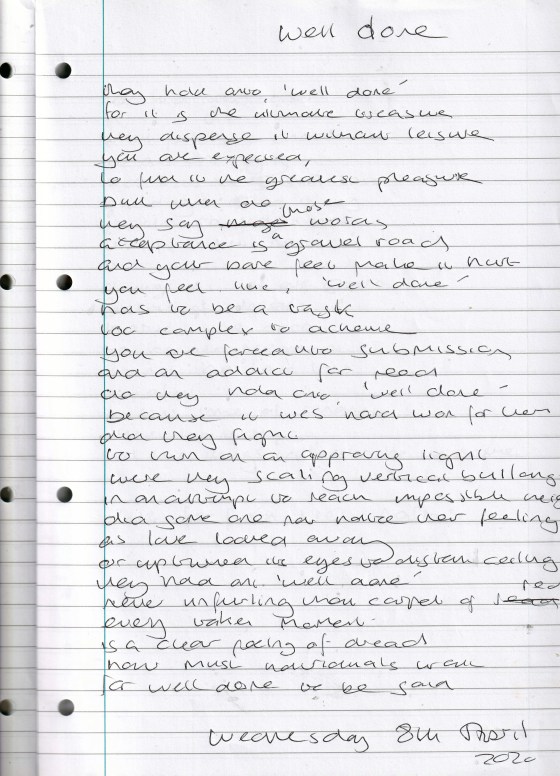 well done
they hold onto, 'well done'
for it is the ultimate treasure
they dispense it without leisure
you are expected,
to find it the greatest pleasure
but when do
they say those words
acceptance is a gravel road
and your bare feet make it hurt
you feel like, 'well done'
has to be a task
too complex to achieve
you are forced into submission
and an addict for need
do they hold onto, 'well done'
because it was hard won for them
did they fight
to turn on an approving light
were they scaling vertical buildings
in an attempt to reach impossible
did some one not notice their feeling
as love looked away
or upturned its eyes to distant ceiling
they hold on, 'well done'
never unfurling that carpet of red
every taken moment
is a clear pacing of dread
how must individuals walk
for well done to be said
Wednesday 8th April
2020